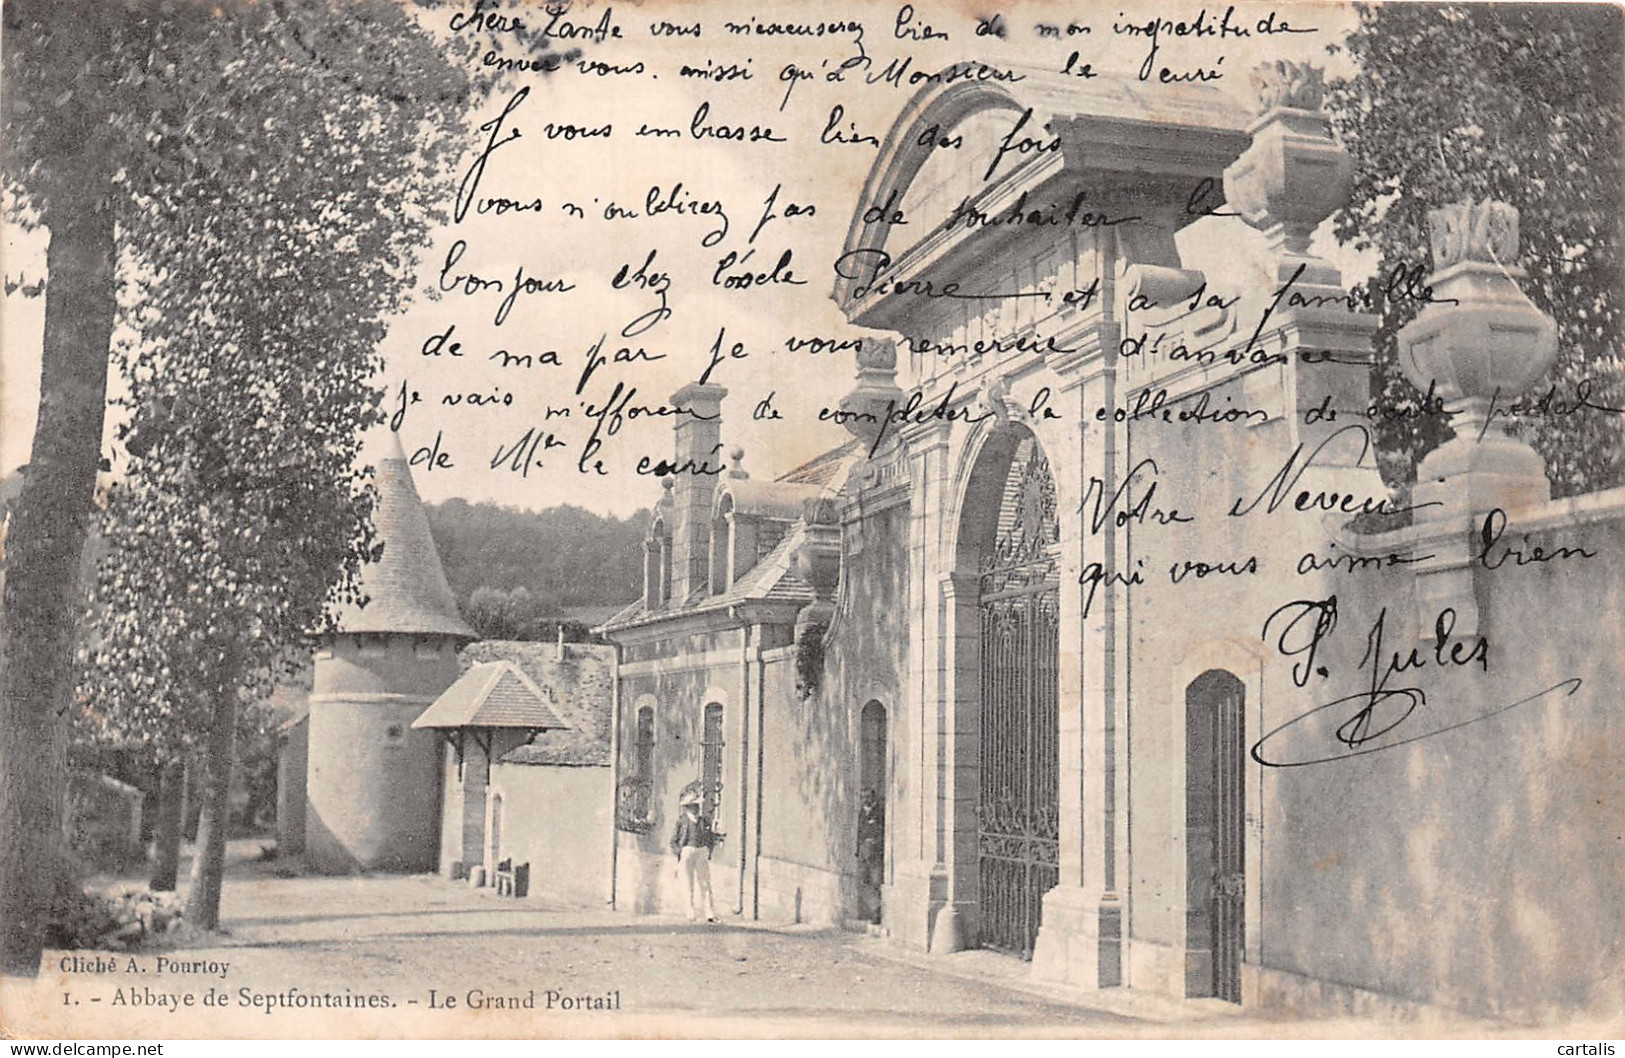 chère Tante vous m'excuserez bien de mon ingratitude
enver vous. aussi qu'à Monsieur le curé
Je vous embrasse bien des fois
vous n'oublirez pas de souhaiter le
bonjour chez l'oncle Pierre et a sa famille
de ma par je vous remercie d'anvance
je vais m'efforcer de completer la collection de carte postal
de Mr. le curé
Votre Neveu
qui vous aime bien
P. Jules
Cliché A. Pourtoy
1. - Abbaye de Septfontaines. - Le Grand Portail
cartalis